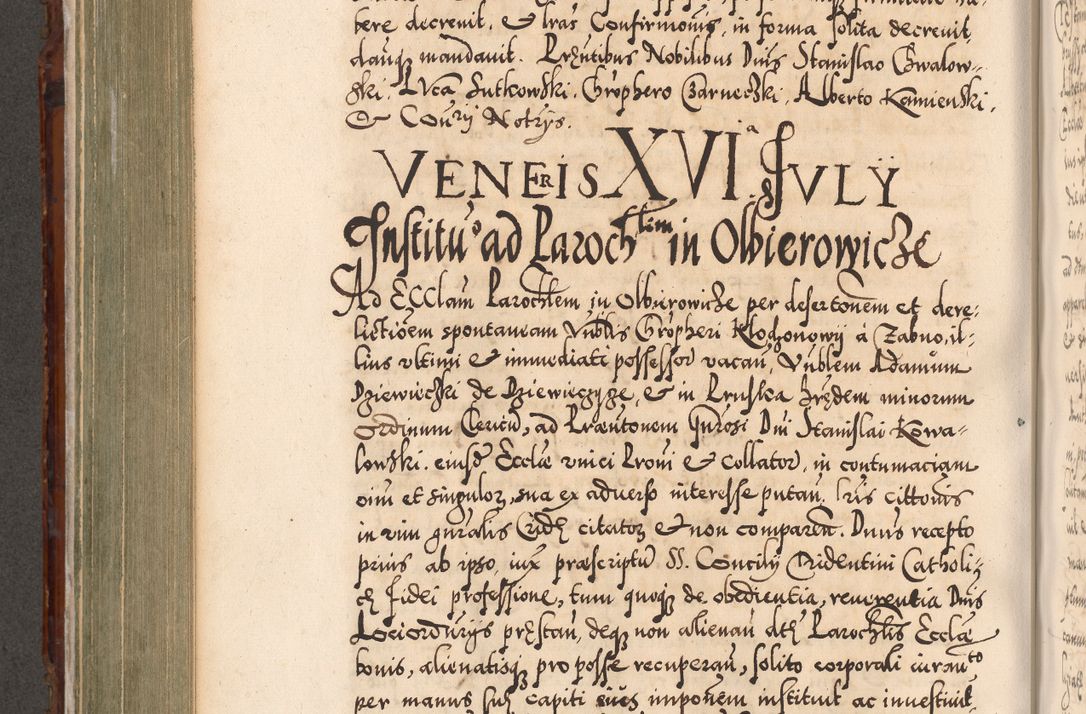 bere decrevit, & lras Confirmonis, in forma solita decrevit,
dauq̨ mandavit. Prẹntibus Nobilibus Dnis Stanislao Chwalow=
ski. Luca Sutkowski. Chrophero Czarnecski, Alberto Kamienski.
& Coury Notrys.
VENERIS XVI.ª IVLY
Institu° ad Paroch^lem in Olbierowicze
Ad ECClam Parochlem in Olbierowicze per desertonem et dere=
lictioem spontaneam Vnblis Chropheri Klodzonowy à Zabno, il=
lius vltimi & immediati possessor vacan, Vnblem Adamum
Dziewiecski de Dziewieczyze, & in Pruska Brzędem minorum
Ordinum Clericu, ad Præntonem Gnrosi Dni Stanislai Kowa=
lowski. eiusd Ecclæ vnici Proni & Collator, in contumaciam
oim et singulor, sua ex adverso interesse putan. lris cittonis
in vim gnralis Crdę citator & non comparen. Dnus recepto
prius ab ipso, iux præscriptu SS. Concily Tridentini Catholi=
cę fidei professione, tum quoq̨ de obedientia, reverentia Dnis
Lociordnrys pręstan, deq̨ non alienan dtę Parochlis Ecclæ
bonis, alienatisq̨ pro posse recuperan, solito corporali iuram^to
per manus suę capiti eius imponem instituit ac investivit,